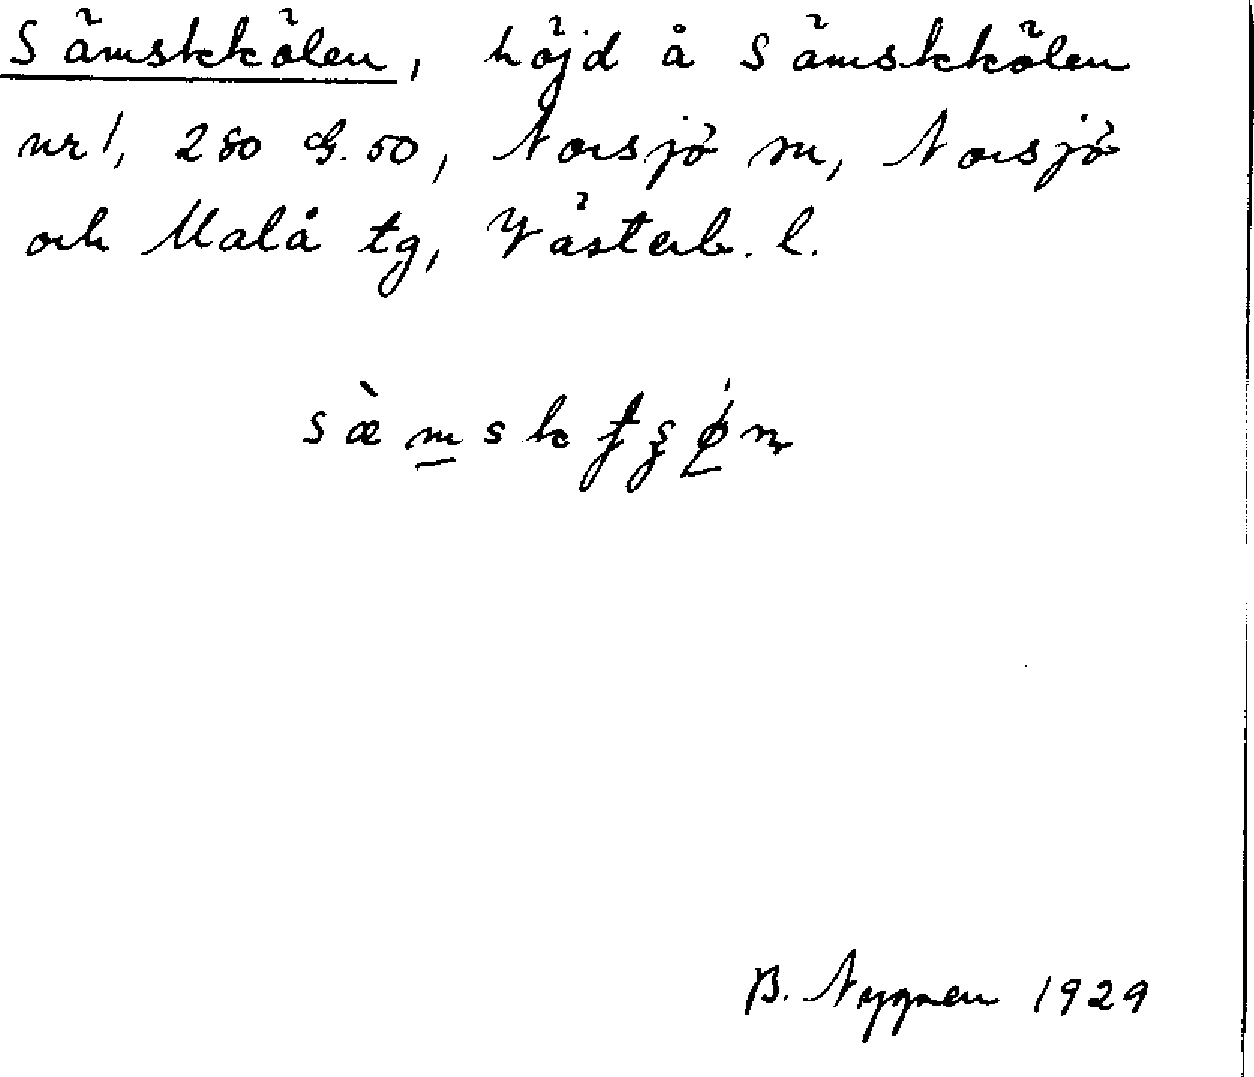 Sämskkölen, höjd å Sämskkölen
nr 1, 280 G. 50, Norsjö sn, Norsjö
och Malå tg, Västerb. l.
B. Nygren 1929